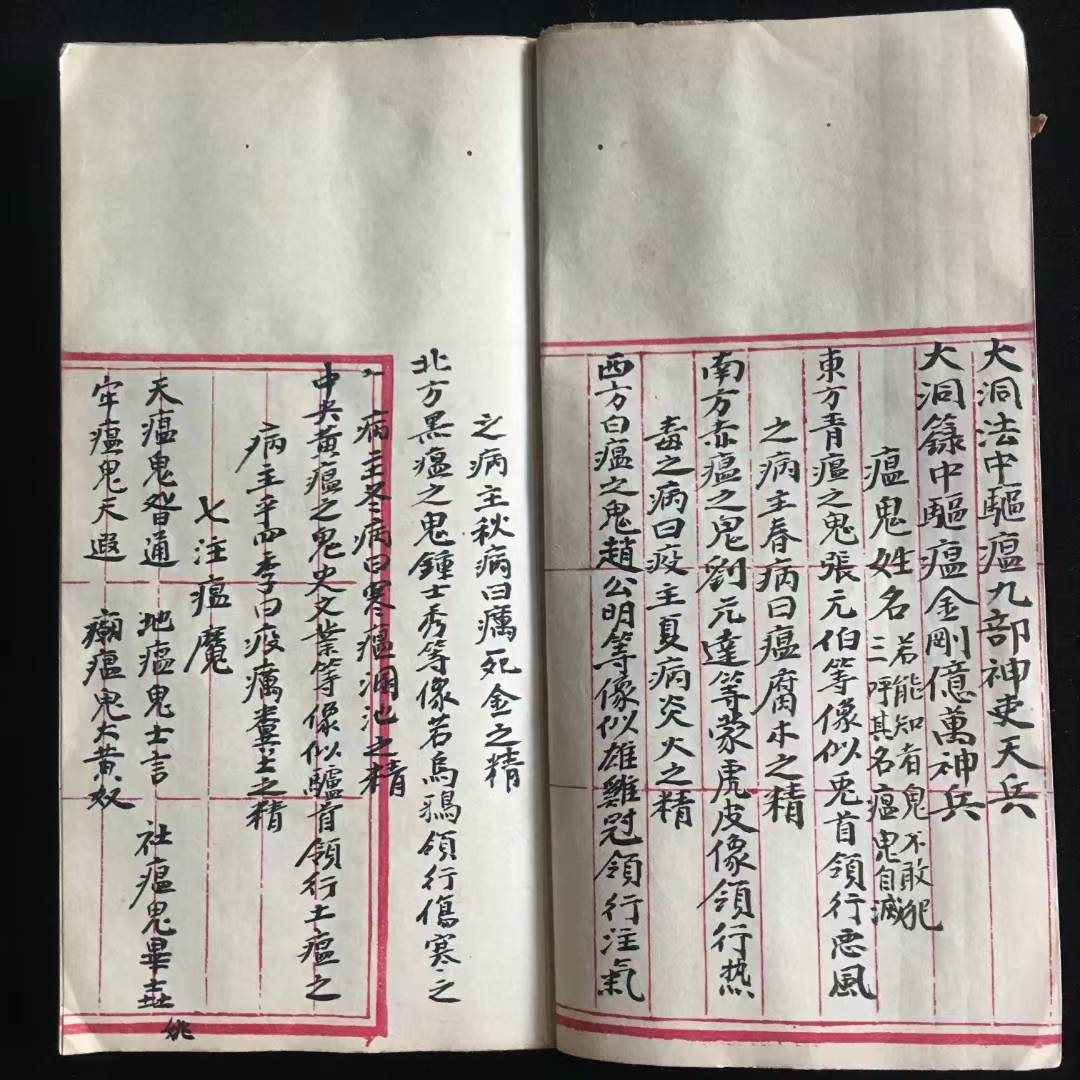 大洞法中驅瘟九部神吏天兵
大洞籙中驅瘟金剛億萬神兵
瘟鬼姓名 若能知者鬼不敢犯
三呼其名瘟鬼自滅
東方青瘟之鬼張元伯等像似兎首領行悪風
之病主春病曰瘟腐木之精
南方赤瘟之鬼劉元達等蒙虎皮像領行热
毒之病曰疫主夏病炎火之精
西方白瘟之鬼趙公明等像似雄雞冠領行注氣
之病主秋病曰癘死金之精
北方黑瘟之鬼鍾士秀等像若烏鴉領行傷寒之
病主冬病曰寒瘟溷池之精
中央黄瘟之鬼史文業等像似驢首領行土瘟之
病主辛四季曰疫癘糞土之精
七注瘟魔
天瘟鬼咎通 地瘟鬼士言 社瘟鬼畢
牢瘟鬼天遐 廟瘟鬼大黄奴
姚